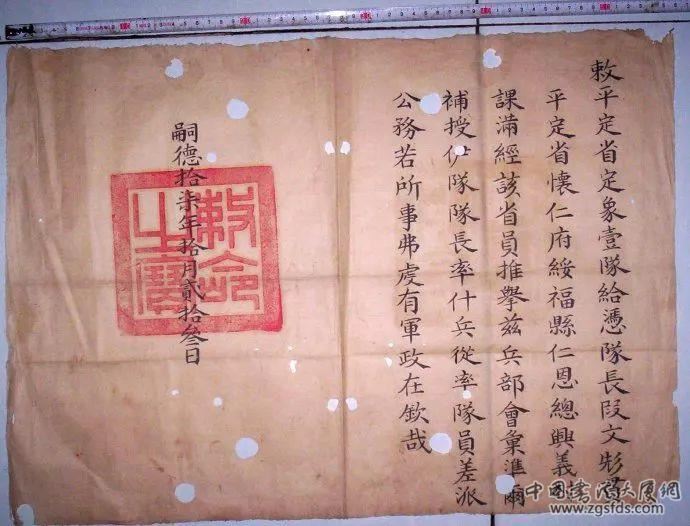 敕平定省定象壹隊給憑隊長段文彬
平定省懷仁府綏福縣仁恩總興義
課滿經該省員推舉茲兵部會彙準爾
補授伊隊隊長率什兵從率隊員差派
公務若所事弗虔有軍政在欽哉
嗣德拾柒年拾月貳拾叁日
敕命之寶
中國書法大展網
www.zgsfds.com